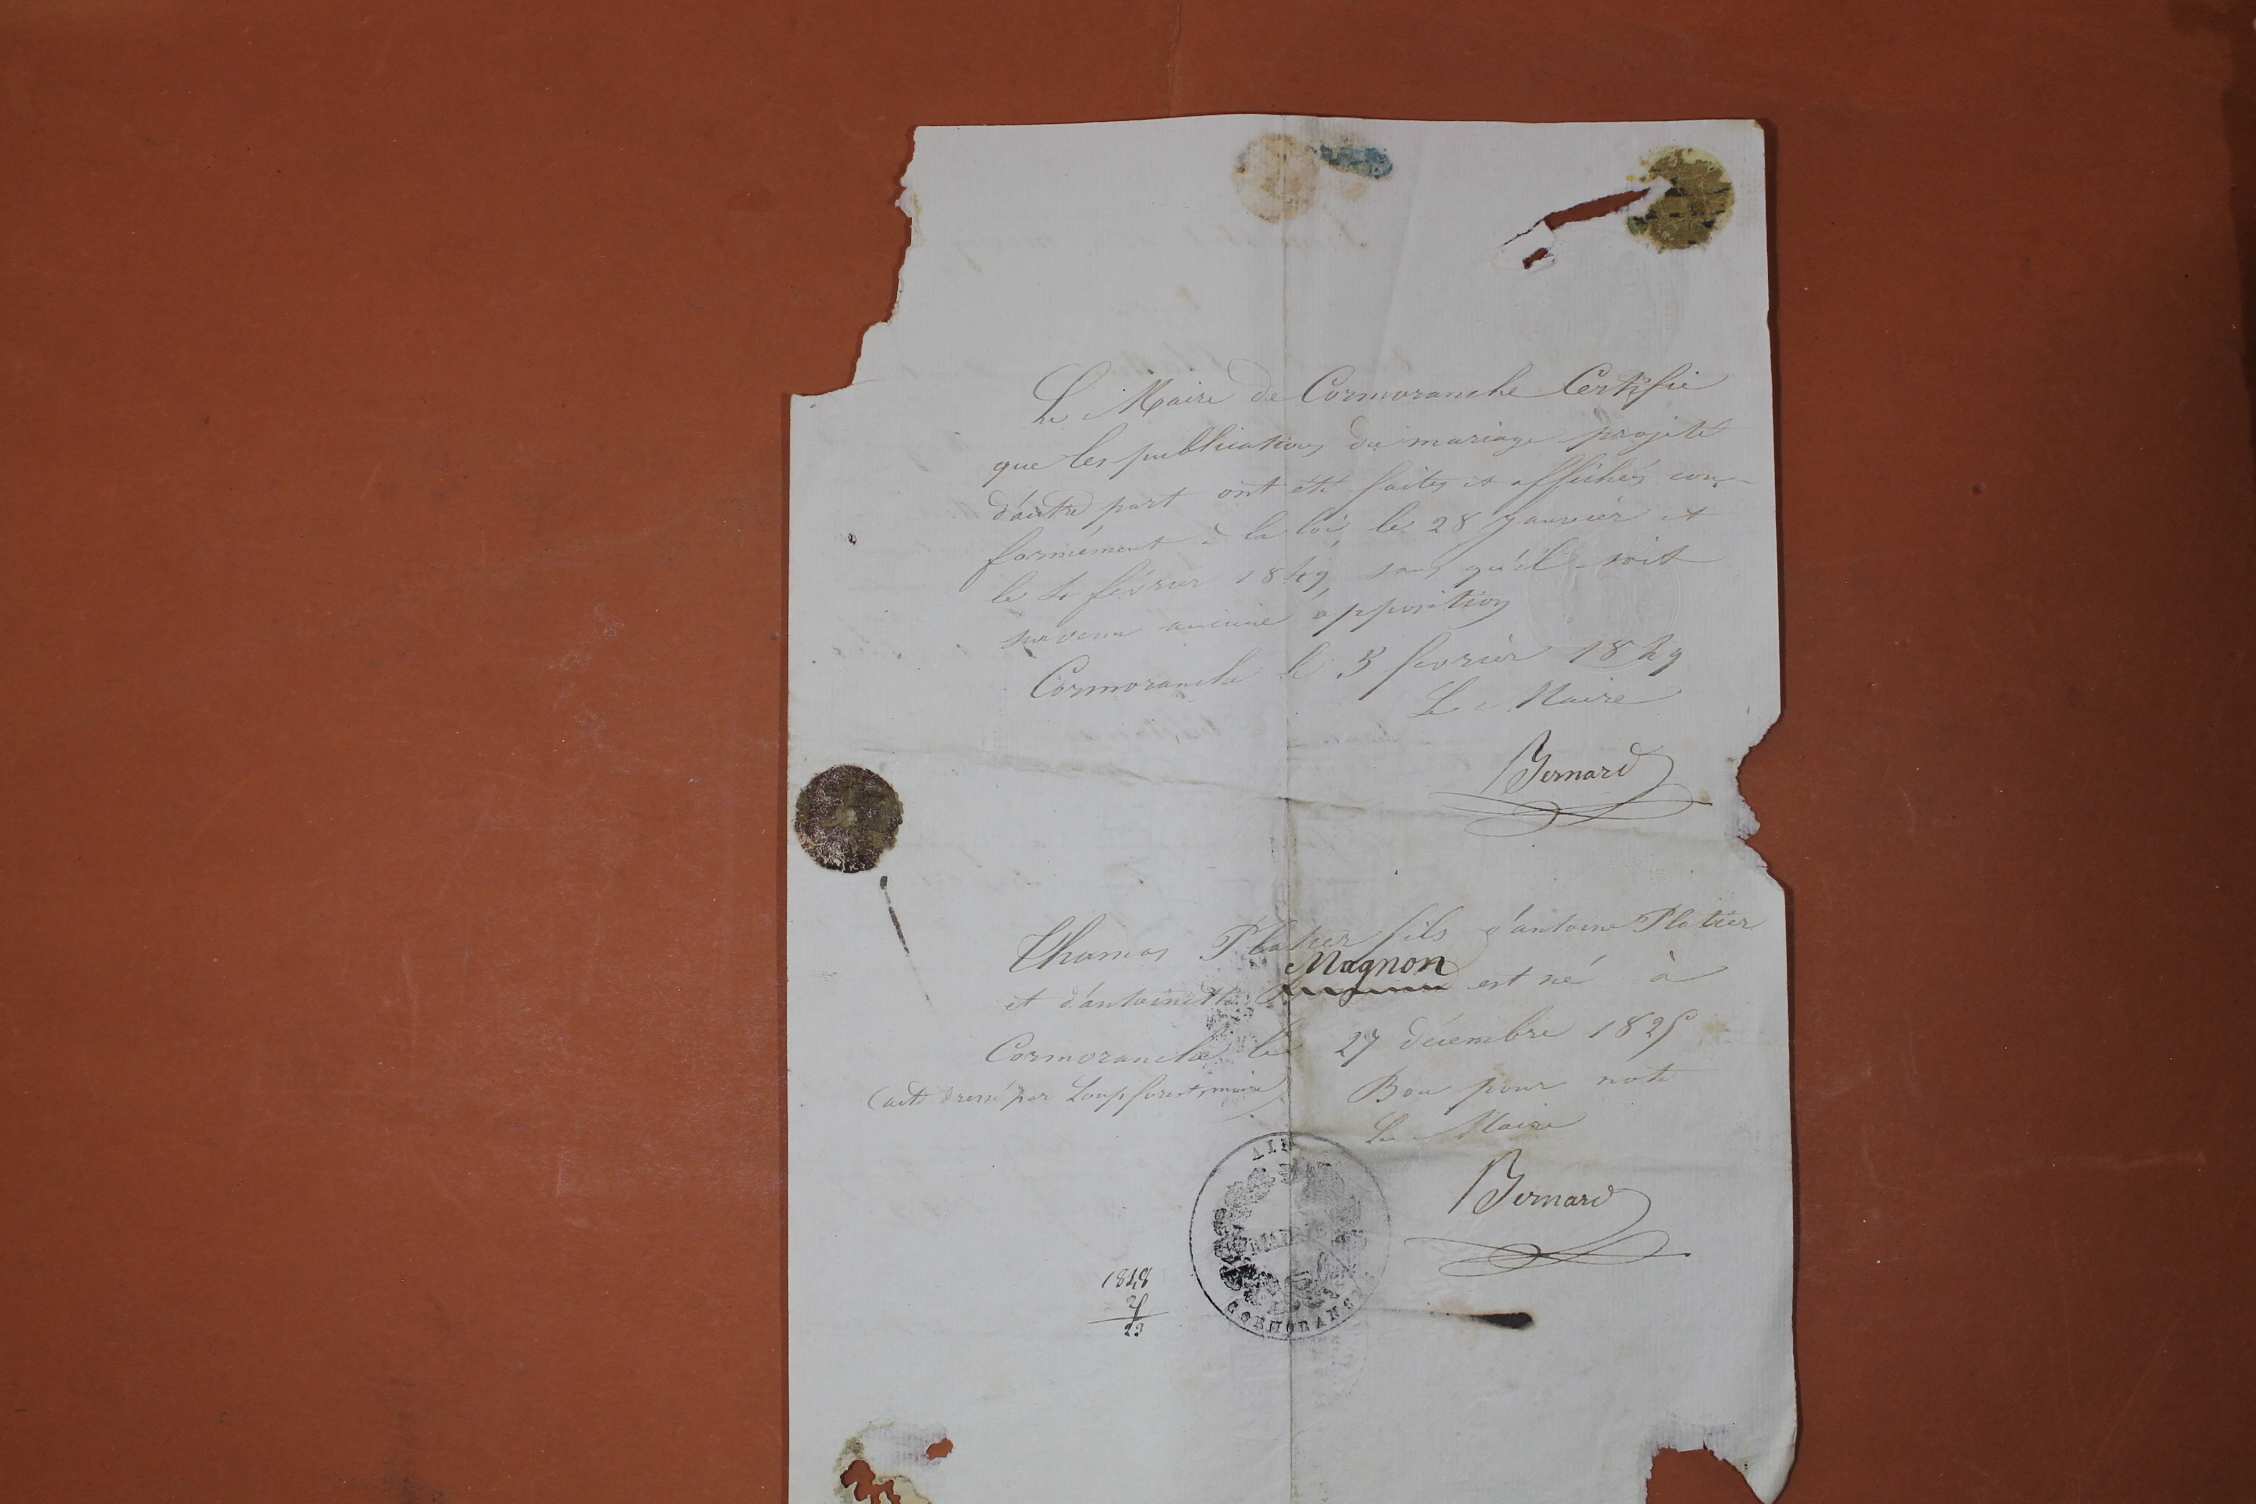 Le Maire de Cormoranche Certifie
que les publications du mariage projeté
d'autre part ont été faites et affichés con-
formément à la loi, le 28 janvier et
le 4 févrer 1849, sans qu'il soit
survenu aucune opposition
Cormoranche le 5 fevrier 1849
Le Maire
Bernard
Thomas Platier fils d'antoine Platier
Magnon
et d'antoinette est né à
Cormoranche le 27 décembre 1825
(acte dressé par Loupforest, maire)
Bon pour note
Le Maire
Bernard
AIN
MAIRIE
CORMORANCHE
1848
25
23